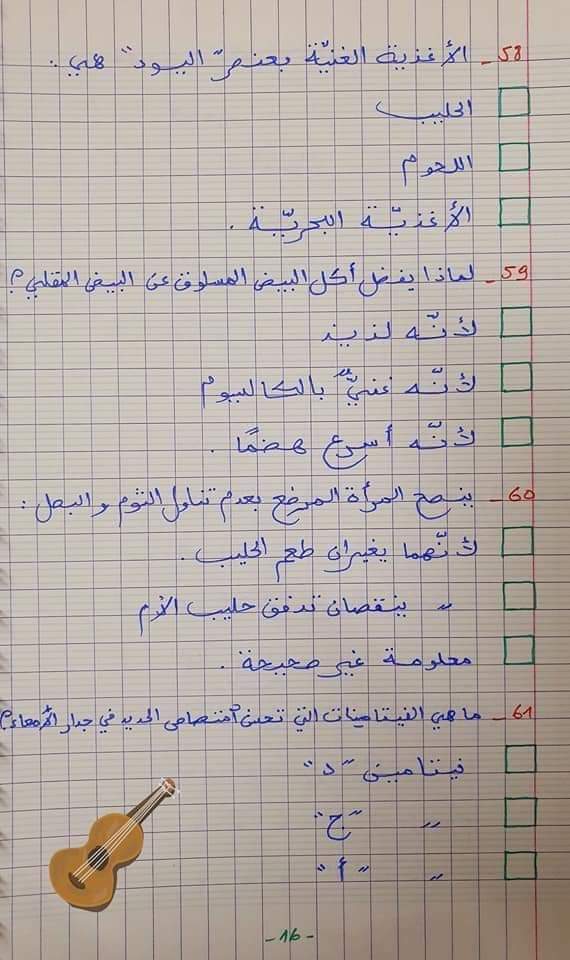 58_ الأغذية الغنيّة بعنصر "اليود" هي :
الحليب
اللحوم
الأغذيّة البحريّة .
59_ لماذا يفضل أكل البيض المسلوق عن البيض المقلي ؟
لأنّه لذيذ
لأنّه غنيٌّ بالكالسيوم
لأنّه أسرع هضمًا .
60_ ينصح المرأة المرضع بعدم تناول الثوم والبصل :
لأنّهما يغيران طعم الحليب .
" ينقصان تدفق حليب الأم
معلومة غير صحيحة .
61_ ما هي الفيتامينات التي تحسن امتصاص الحديد في جدار الأمعاء ؟
فيتامين "د"
" "ج"
" "أ"
- 16 -